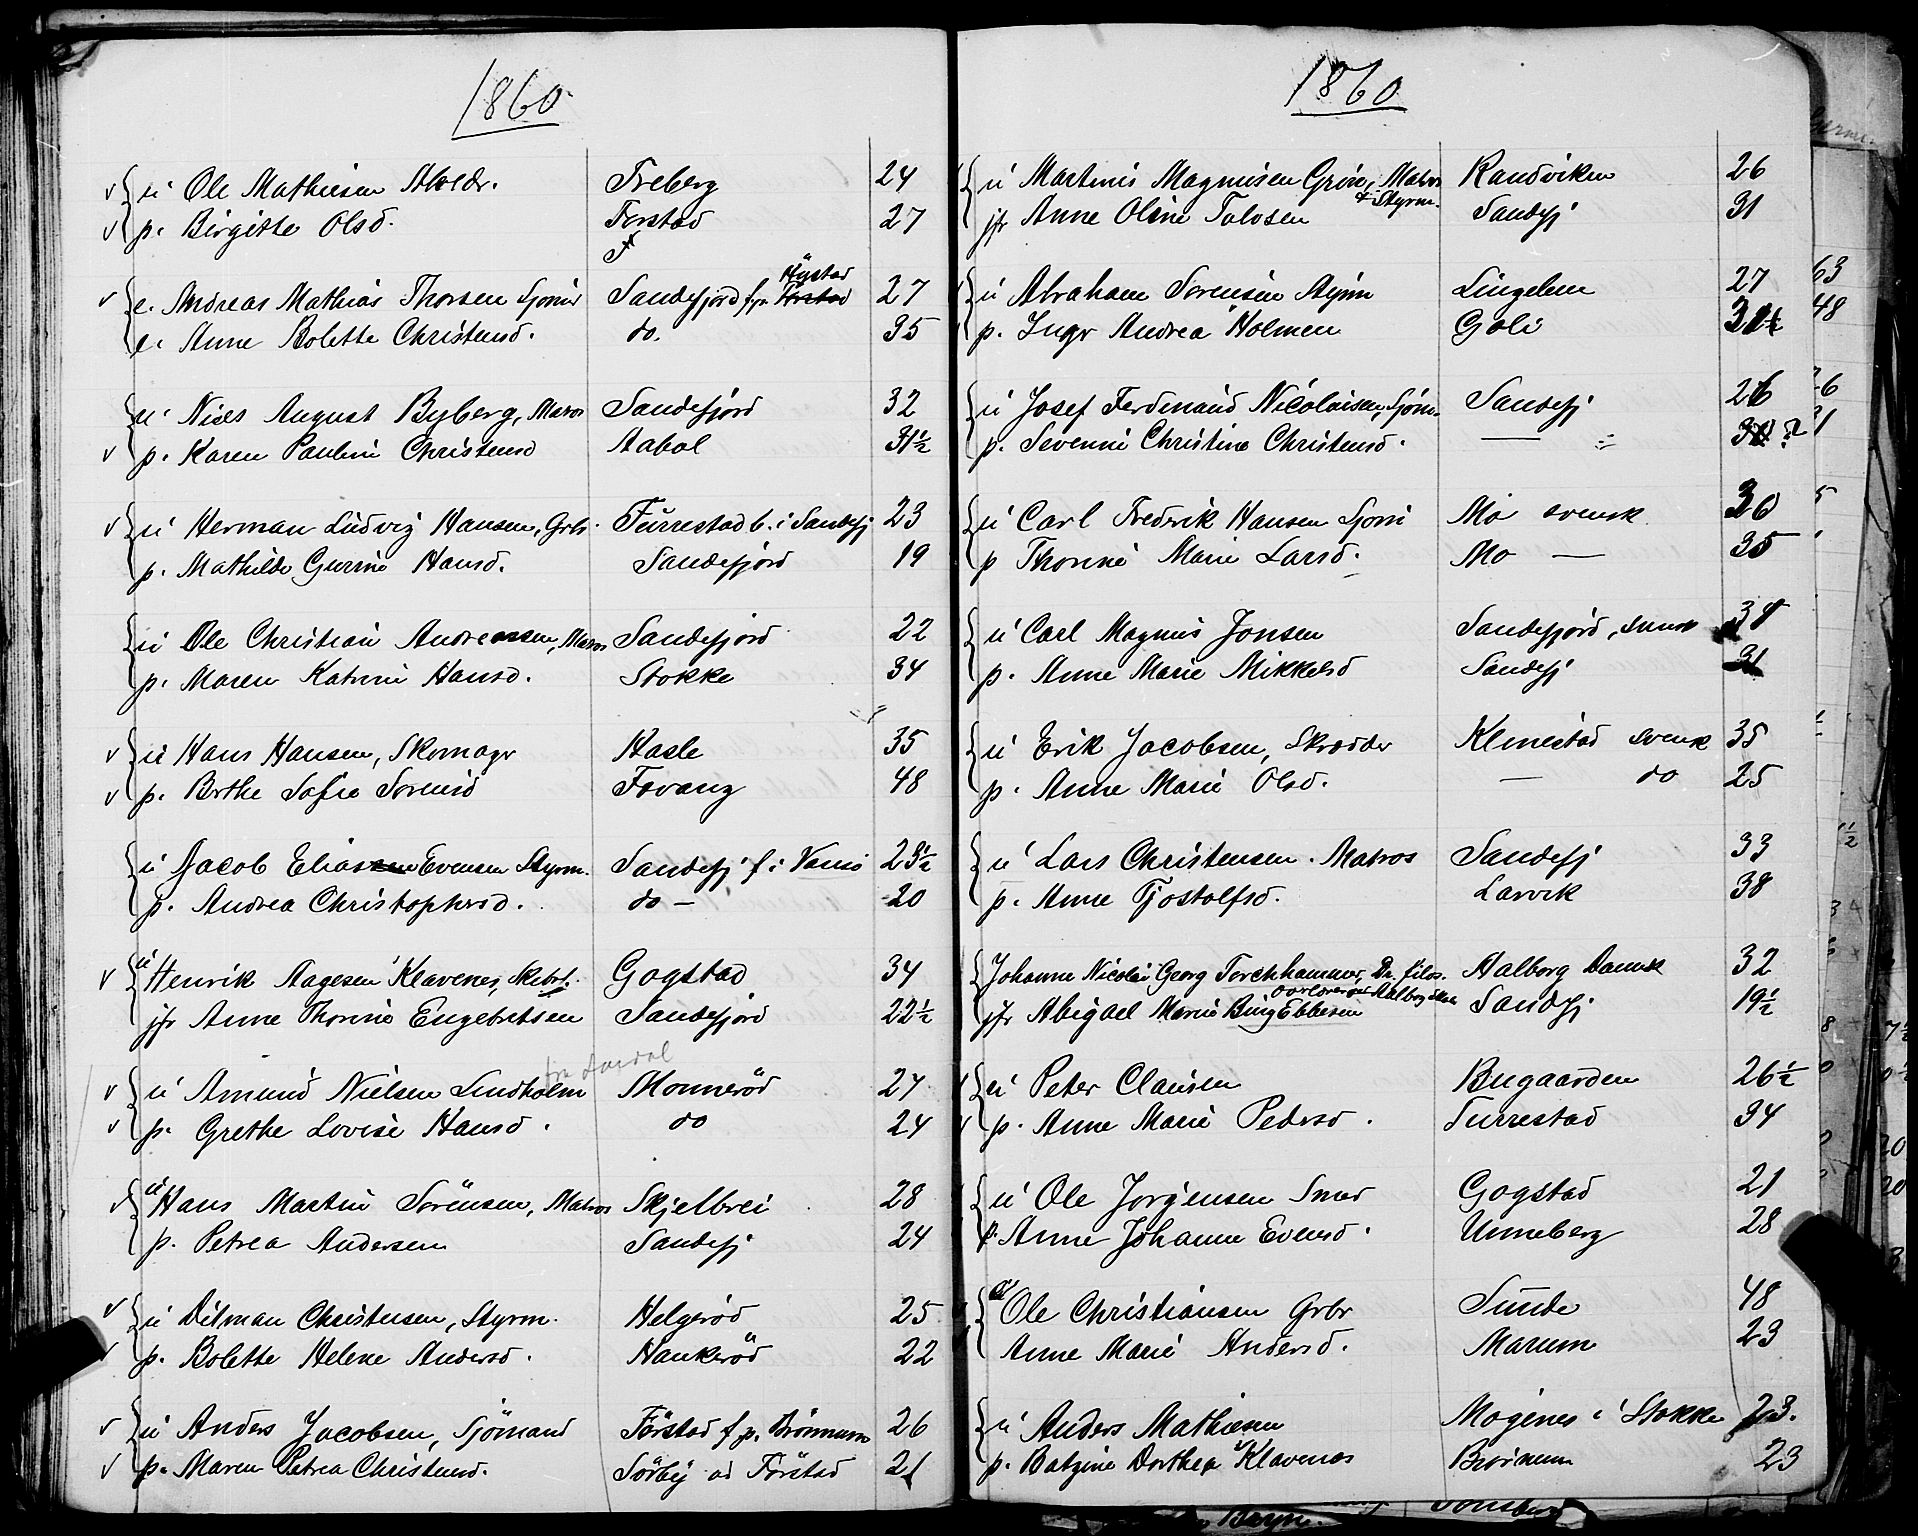 1860
u Ole Mathiesen Skrædr. Freberg 24
p. Birgitte Olsd. Forstad 27
Hystad
e. Andreas Mathias Thorsen Sjøm Sandefjord f. p. Forstad 27
e. Anne Bolette Christensd. do. 35
u Niels August Byberg, Matros Sandefjord 32
p. Karen Pauline Christensd Aabol 31½
u Herman Ludvig Hansen, Grbr. Furrestad b. i Sandefj 23
p. Mathilde Gurine Hansd. Sandefjord 19
u Ole Christian Andreassen, Matros Sandefjord 22
p. Maren Katrine Hansd. Stokke 34
u Hans Hansen, Skomagr Hasle 35
p. Brthe Sofie Sørensd Fevang 48
u Jacob Eliassen Evensen Styrm. Sandefj f. i Vams 23½
p. Andrea Christophersd. do — 20
u Henrik Aagesen Klavenes, Skibsf. Gogstad 34
jfr Anne Thorine Engebretsen Sandefjord 22½
fra Lardal
u Amund Nielsen Lindholm Monnerød 27
p. Grethe Lovise Hansd. do 24
u Hans Martin Sørensen, Matros Skjelbrei 28
p. Petrea Andersen Sandefj 24
u Ditman Christensen, Styrm. Helgerød 25
p. Bolette Helene Andersd. Haukerød 22
u Anders Jacobsen, Sjömand Förstad f. p. Brönnum 26
p. Maren Petrea Christensd. Sörby ad Förstad 21
1860
u Martinis Magnusen Grøn, Matros Randviken 26
& Styrm.
jfr Anne Oline Talvsen Sandefj 31
u Abraham Sørensen Styrm Lingelem 27
p. Ingr Andrea Holmen Goli
u Josef Ferdinand Nicolaisen, Sjøm. Sandefj 26
p. Severine Christine Christensd. —
u Carl Fredrik Hansen Sjøm Mo svensk 30
p Thorine Marie Larsd. Mo — 35
u Carl Magnus Jonsen Sandefjord, svensk
p. Anne Marie Mikkelsd Sandefj 31
u Erik Jacobsen, Skrædder Klinestad svensk 35
p. Anne Marie Olsd. — do 25
u Lars Christensen. Matros Sandefj 33
p. Anne Tjostolfsd. Larvik 38
Johanne Nicolai Georg Forchhammer, Dr. filos. Aalborg Danmk 32
overlærer ved Aalborg skole
jfr Abigael Marie Bing Ebbesen Sandfj 19½
u Peter Clausen Bugaarden 26½
p. Anne Marie Pedersd. Furrestad 34
u Ole Jørgensen Smed Gogstad 21
p. Anne Johanne Evensd. Unneberg 28
u Ole Christiansen Grbr Sunde 48
Anne Marie Andersd. Marum 23
u Anders Mathiesen Mogenes i Stokke 23.
p. Batzine Dorthea Klavenes Brønnum 23